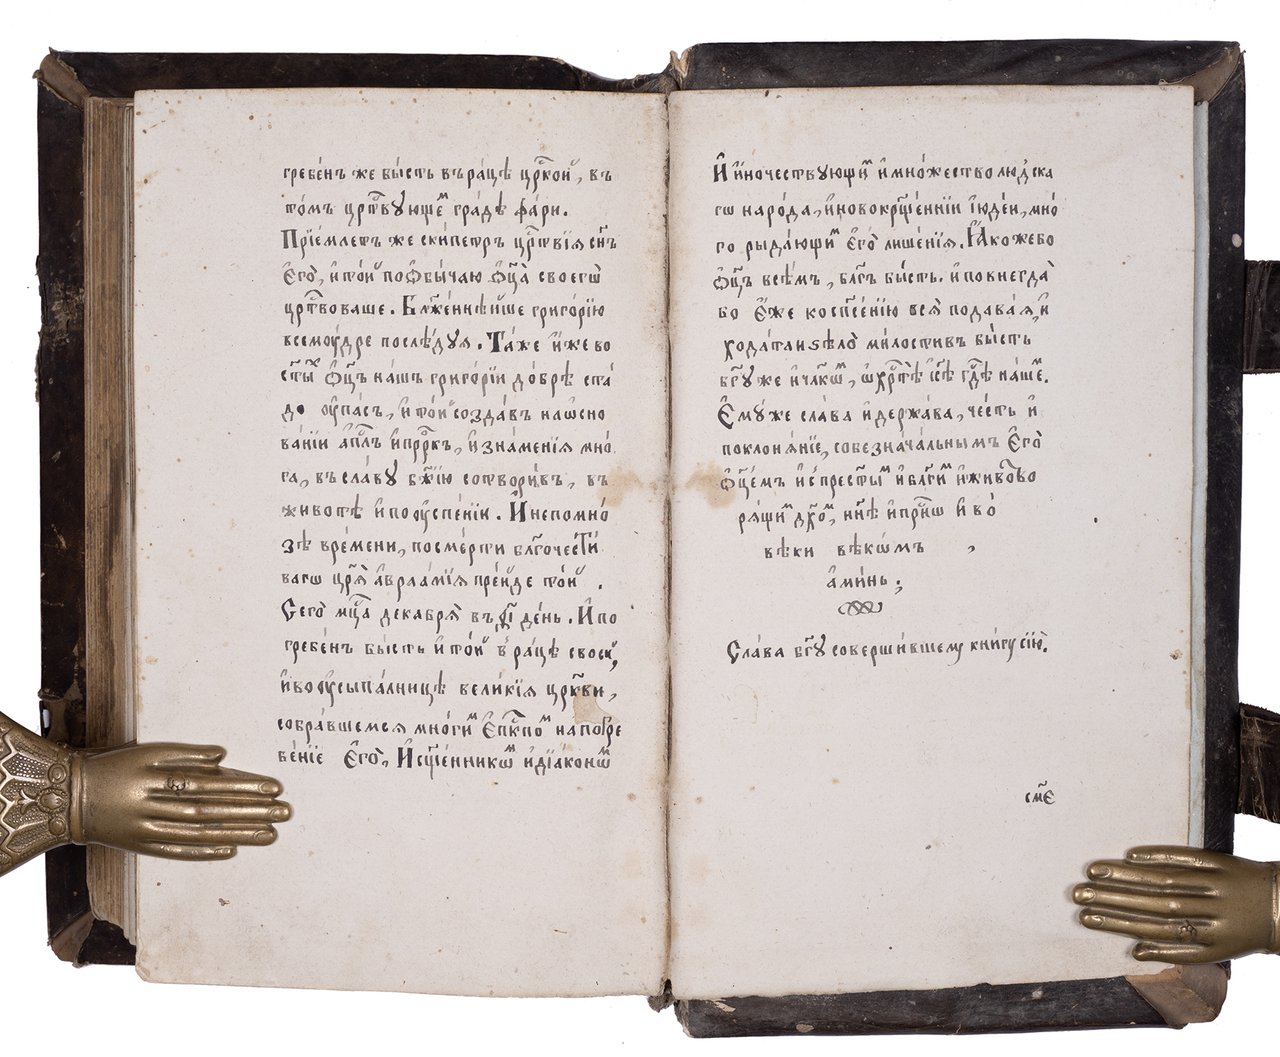 гребе́нъ же бы́сть въ ра́цѣ црⷭ҇кой, въ
то́мъ црⷭ҇твꙋющеⷨ гра́дѣ фа́ри.
Прїе́млетъ же ски́петръ црⷭ҇твїѧ сн҃ъ
є҆гѡ̀, и҆ то́й по ѻ҆бы́чаю ѻ҆ц҃а̀ своегѡ̀
црⷭ҇твоваше. Бл҃же́ннѣйше григо́рїю
всемꙋ́дре послѣ́дꙋѧ. Та́же и҆́же во
ст҃ы́хъ ѻ҆ц҃ъ нашъ григо́рїи до́брѣ ста́
до ᲂу҆па́съ, и҆ то́й созда́въ на ѡ҆сно
ва́нїи а҆пⷭ҇лъ и҆ прⷪ҇ркъ, и҆ зна́менїѧ мнѡ́
га, въ сла́вꙋ бж҃їю сотвори́въ, въ
животѣ̀ и҆ по ᲂу҆спе́нїи. И҆ не по мнѡ́
зѣ вре́мени, по сме́рти бл҃гочести́
вагѡ цр҃ѧ̀ а҆враа́мїѧ пре́йде то́й.
Сегѡ̀ мцⷭ҇а декабрѧ̀ въ день. И҆ по
гребе́нъ бы́сть и҆ то́й в ра́цѣ свое́й,
и҆ во ᲂу҆сыпа́лницѣ вели́кїѧ цр҃кви,
собра́вшемсѧ мно́гиⷨ є҆пⷭ҇кпоⷨ на погре
бе́нїе є҆гѡ̀, и҆ сщ҃е́нникѡⷨ и҆ дїа́конѡⷨ
И҆ и҆́ночествꙋющиⷨ и҆ мно́жество людска
гѡ наро́да, и҆ новокрⷭ҇ще́ннїи і҆ꙋде́и, мно́
го рыда́ющиⷨ є҆гѡ̀ лише́нїѧ. Ꙗ҆́коже бо
ѻ҆ц҃ъ всѣ́мъ, бл҃гъ бы́сть. и҆ повнегда̀
бо є҆́же ко спⷭ҇е́нїю всѧ̀ подава́ѧ, и҆
хода́таи ѕѣлѡ̀ ми́лостивъ бы́сть
бг҃ꙋ же и҆ чл҃кѡⷨ, ѡ҆ хрⷭ҇тѣ̀ і҆с҃ѣ гдⷭ҇ѣ на́шеⷨ.
Є҆мꙋ́же сла́ва и҆ держа́ва, че́сть и҆
поклонѧ́нїе, со безнача́льнымъ є҆гѡ̀
ѻ҆ц҃е́мъ и҆ с прест҃ы́ⷨ и҆ бл҃ги́ⷨ и҆ животво
рѧ́щиⷨ дх҃оⷨ, нн҃ѣ и҆ при́снѡ и҆ во
вѣ́ки вѣкѡ́мъ,
а҆ми́нь;
Сла́ва бг҃ꙋ соверши́вшемꙋ кни́гꙋ сїю̀.
сме҃